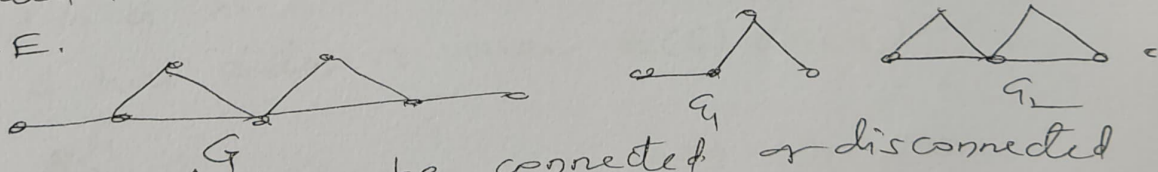 E.
G G1 G2
be connected or disconnected